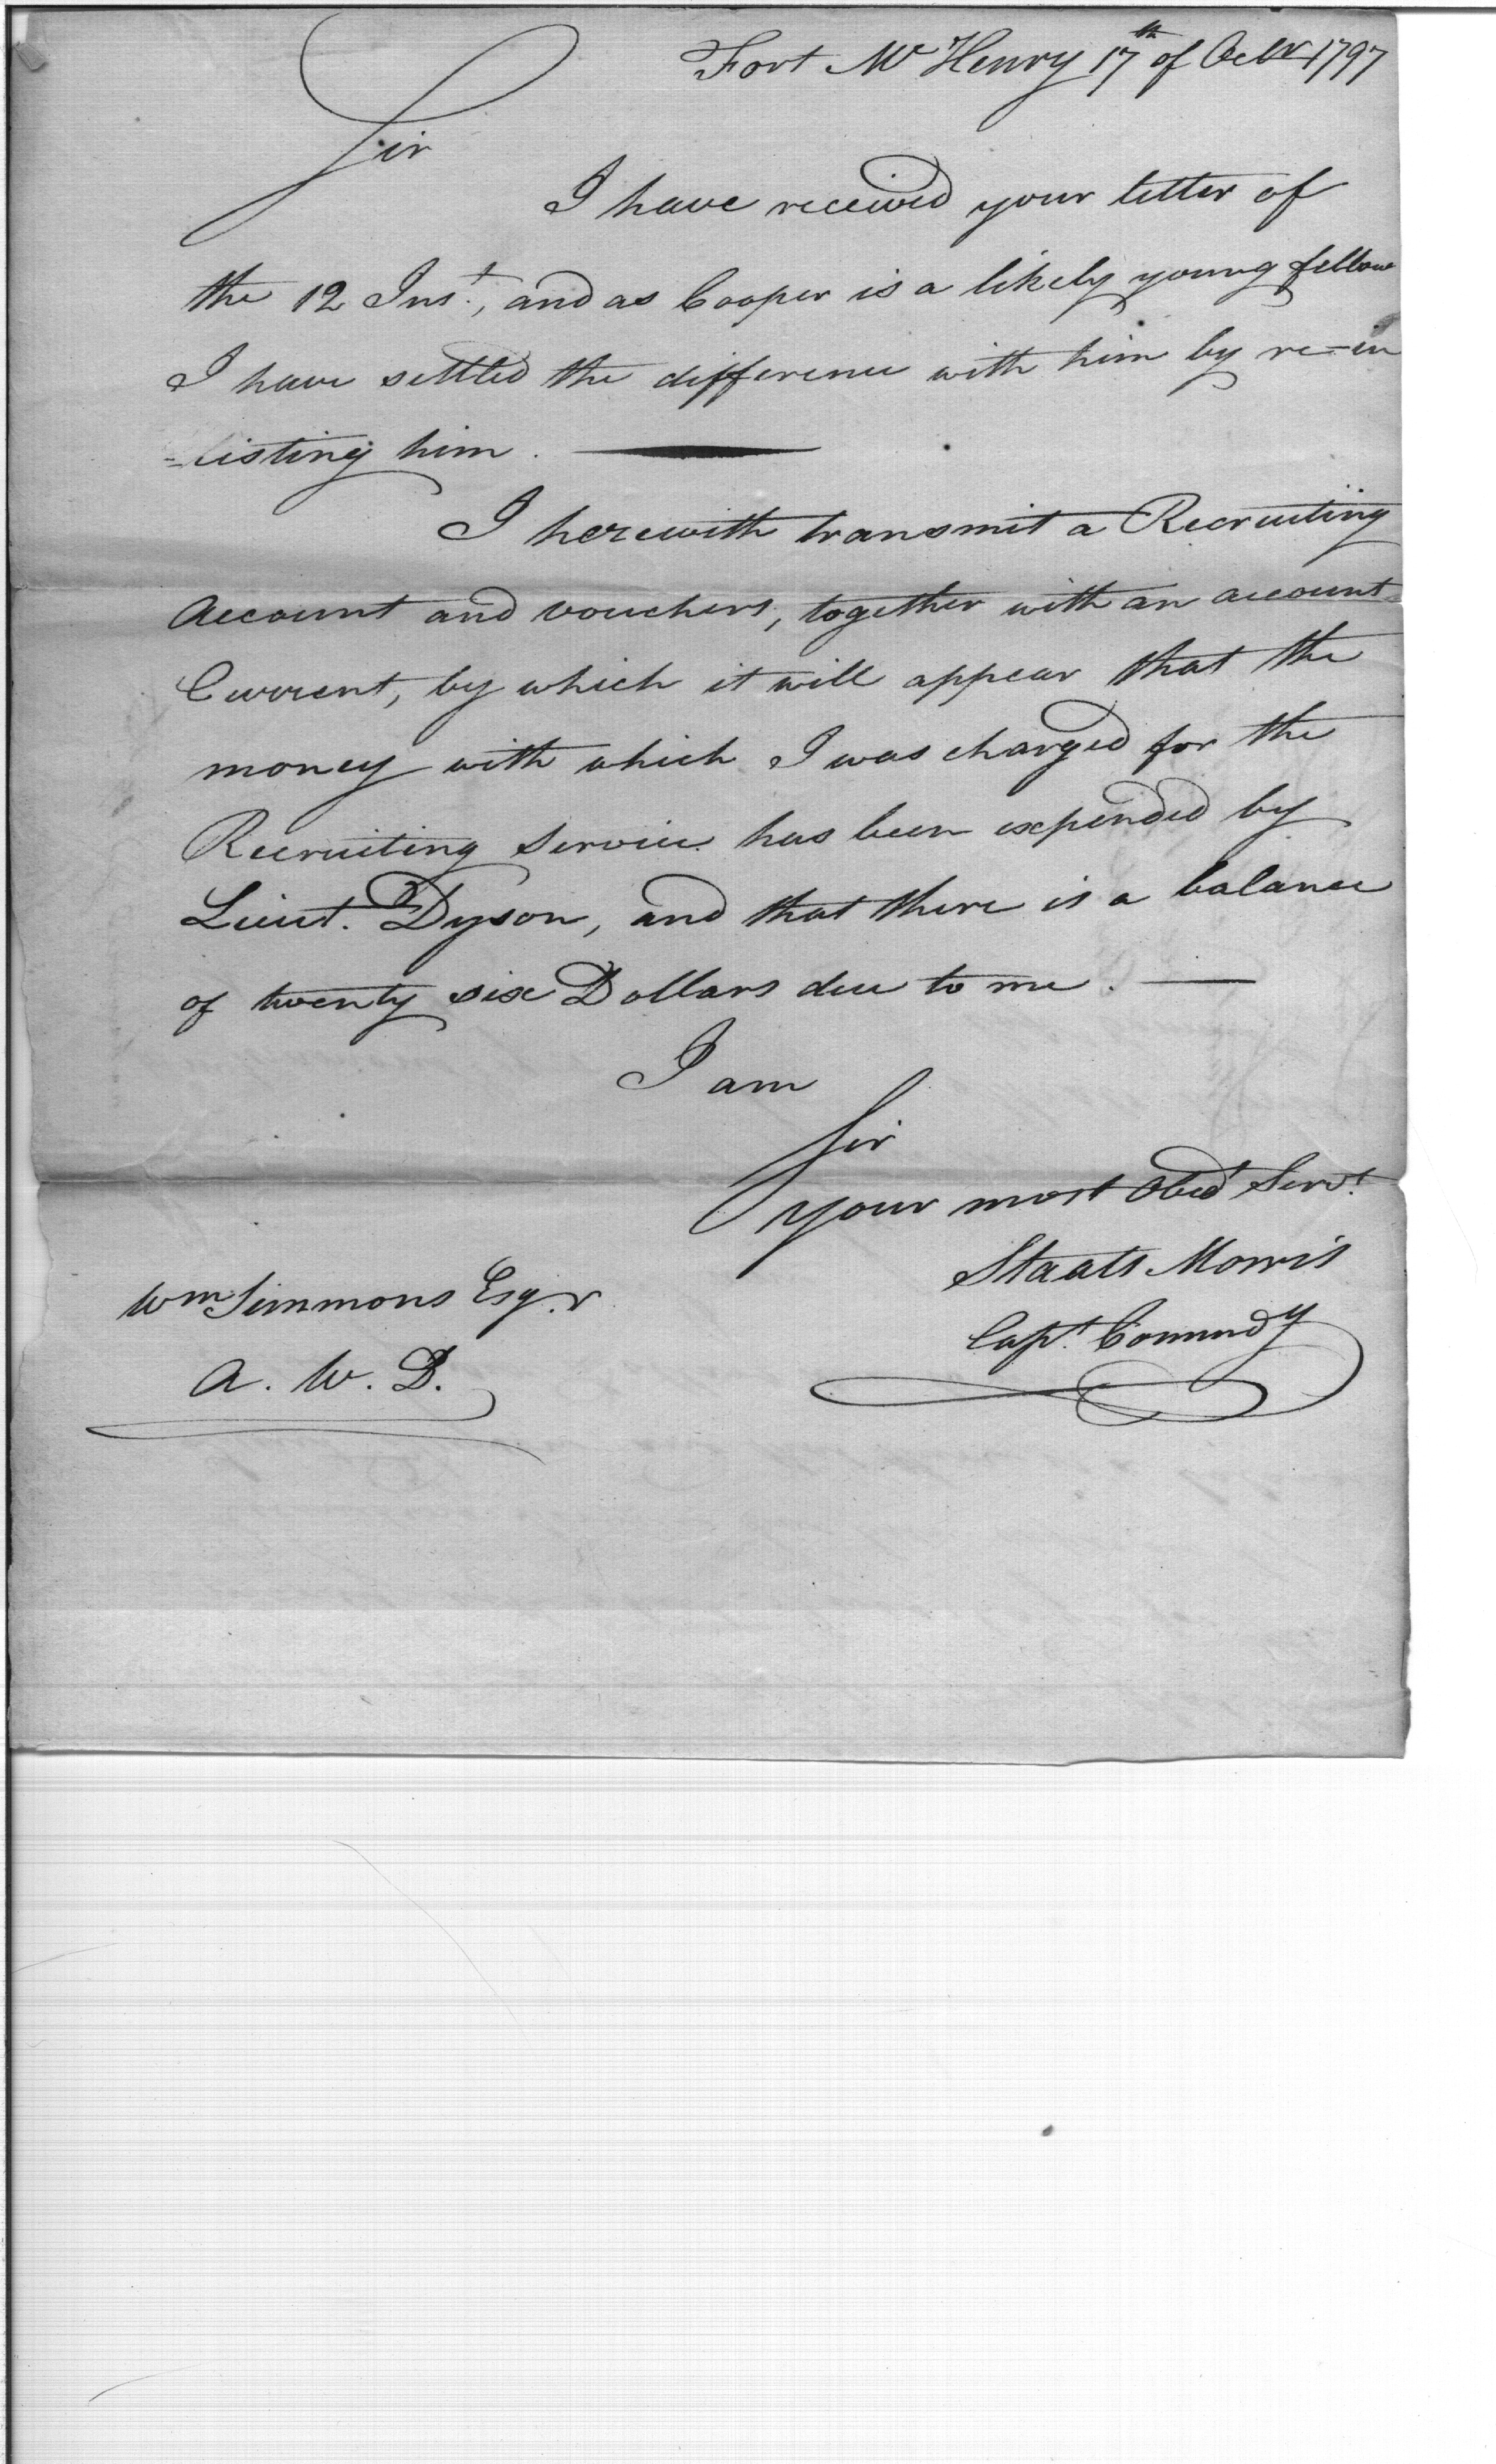 Fort Mc Henry 17th of Octbr 1797
Sir
I have received your letter of
the 12 Inst., and as Cooper is a likely young fellow
I have settled the difference with him by re=in
=listing him.
I herewith transmit a Recruiting
Account and vouchers, together with an account
Current, by which it will appear that the
money with which I was charged for the
Recruiting Service has been expended by
Lieut. Dyson, and that there is a balance
of twenty six Dollars due to me.
I am
Sir
your most Obedt Servt.
Staats Morris
Capt. Commndy
Wm Simmons Esqr.
A. W. D.